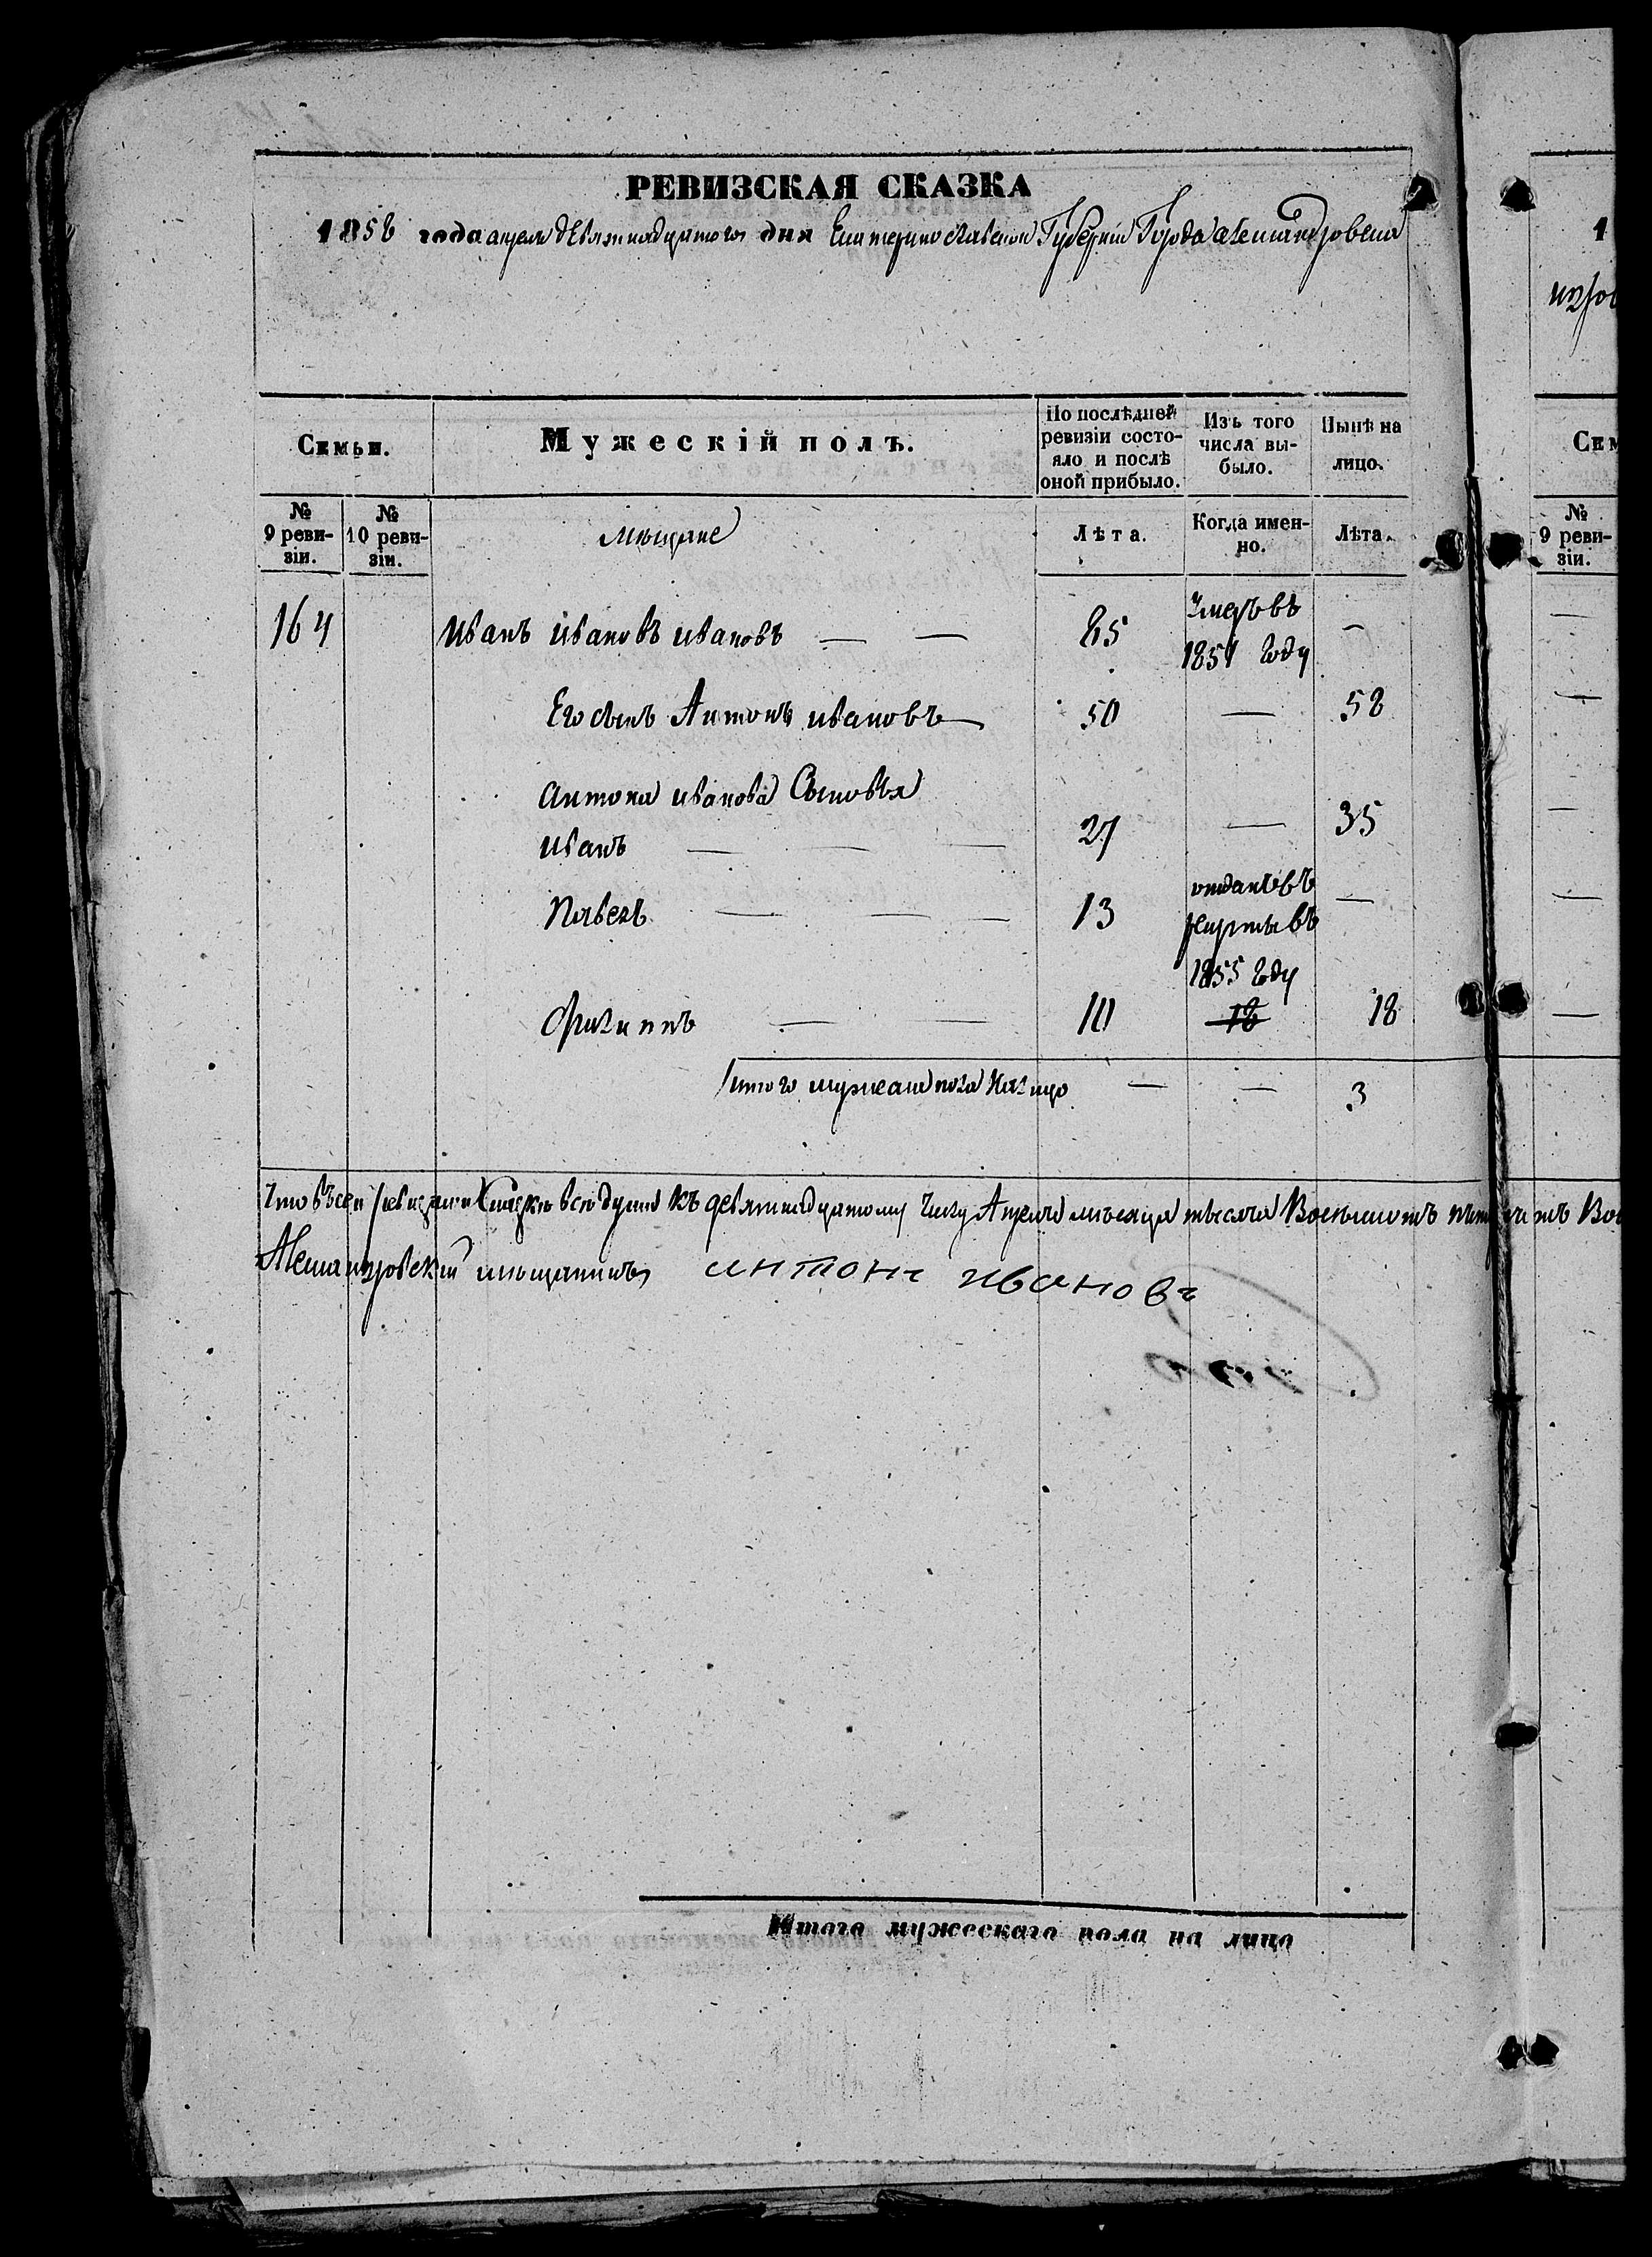 РЕВИЗСКАЯ СКАЗКА
1858 года апреля девятнадцатого дня Екатеринославской Губерніи Города Александровска
1
Семьи.
Мужескій полъ.
По послѣдней ревизіи состояло и послѣ оной прибыло.
Изъ того числа выбыло.
Нынѣ на лицо.
Сем
№ 9 ревизіи.
№ 10 ревизіи.
мещане
Лѣта.
Когда именно.
Лѣта.
№ 9 ревизіи.
164 Иванъ Ивановъ Ивановъ — — 85 Умеръ въ 1851 году —
Его сынъ Антонъ Ивановъ — 50 — 58
Антона Иванова Сыновья
Иванъ — — — 27 — 35
Павелъ — — — 13 отданъ въ рекруты въ 1855 году —
Филиппъ — — 10 18 18
Итого мужеска пола на лицо — — 3
Что въ сей ревизской Сказке все души къ девятнадцатому числу Апреля месяца тысяча Восемьсотъ
Александровский мещанинъ Антонъ Ивановъ
Итого мужескаго пола на лицо